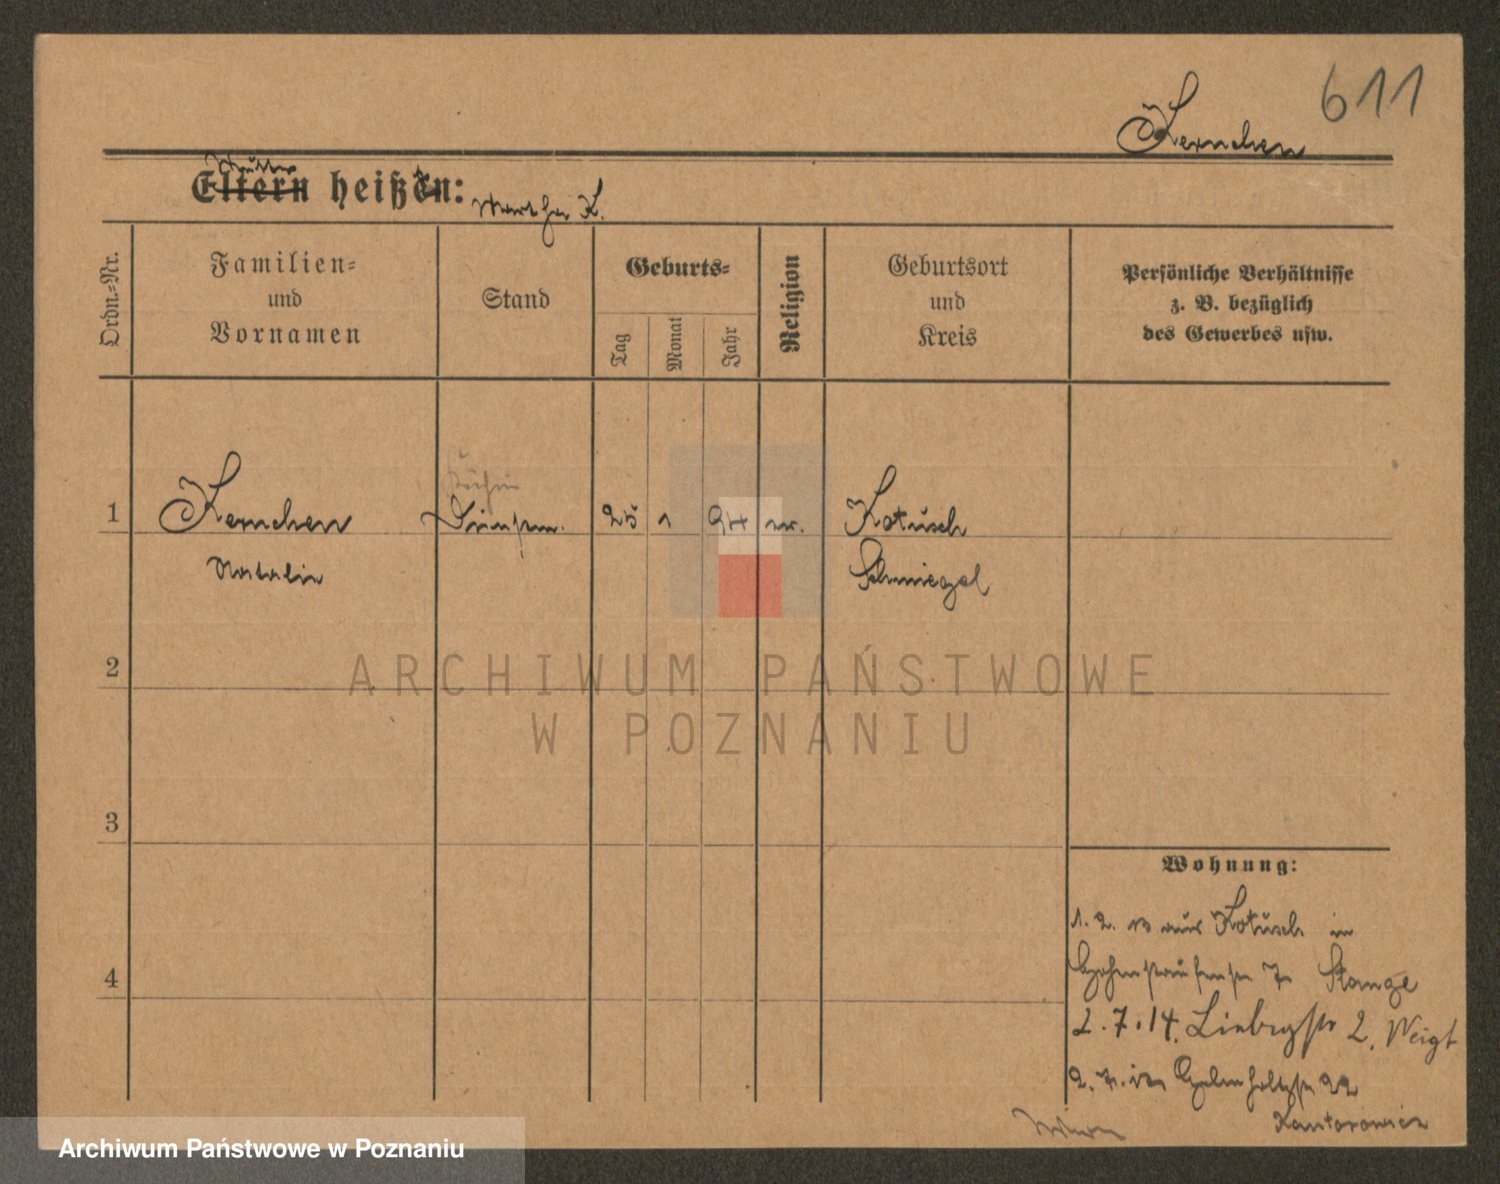 611
Kernchen
Mutter
Eltern heißen: Martha K.
Ordn.-Nr.
Familien-
und
Vornamen
Stand
Geburts-
Tag
Monat
Jahr
Religion
Geburtsort
und
Kreis
Persönliche Verhältnisse
z. B. bezüglich
des Gewerbes usw.
1
Kernchen
25
1
94
Kotusch
Schmiegel
2
ARCHIWUM PAŃSTWOWE
W POZNANIU
3
Wohnung:
4
1. 2. 13 aus Kotusch in
Stange
2. 7. 14. 2. Weigt
22
Kantorowicz
Archiwum Państwowe w Poznaniu